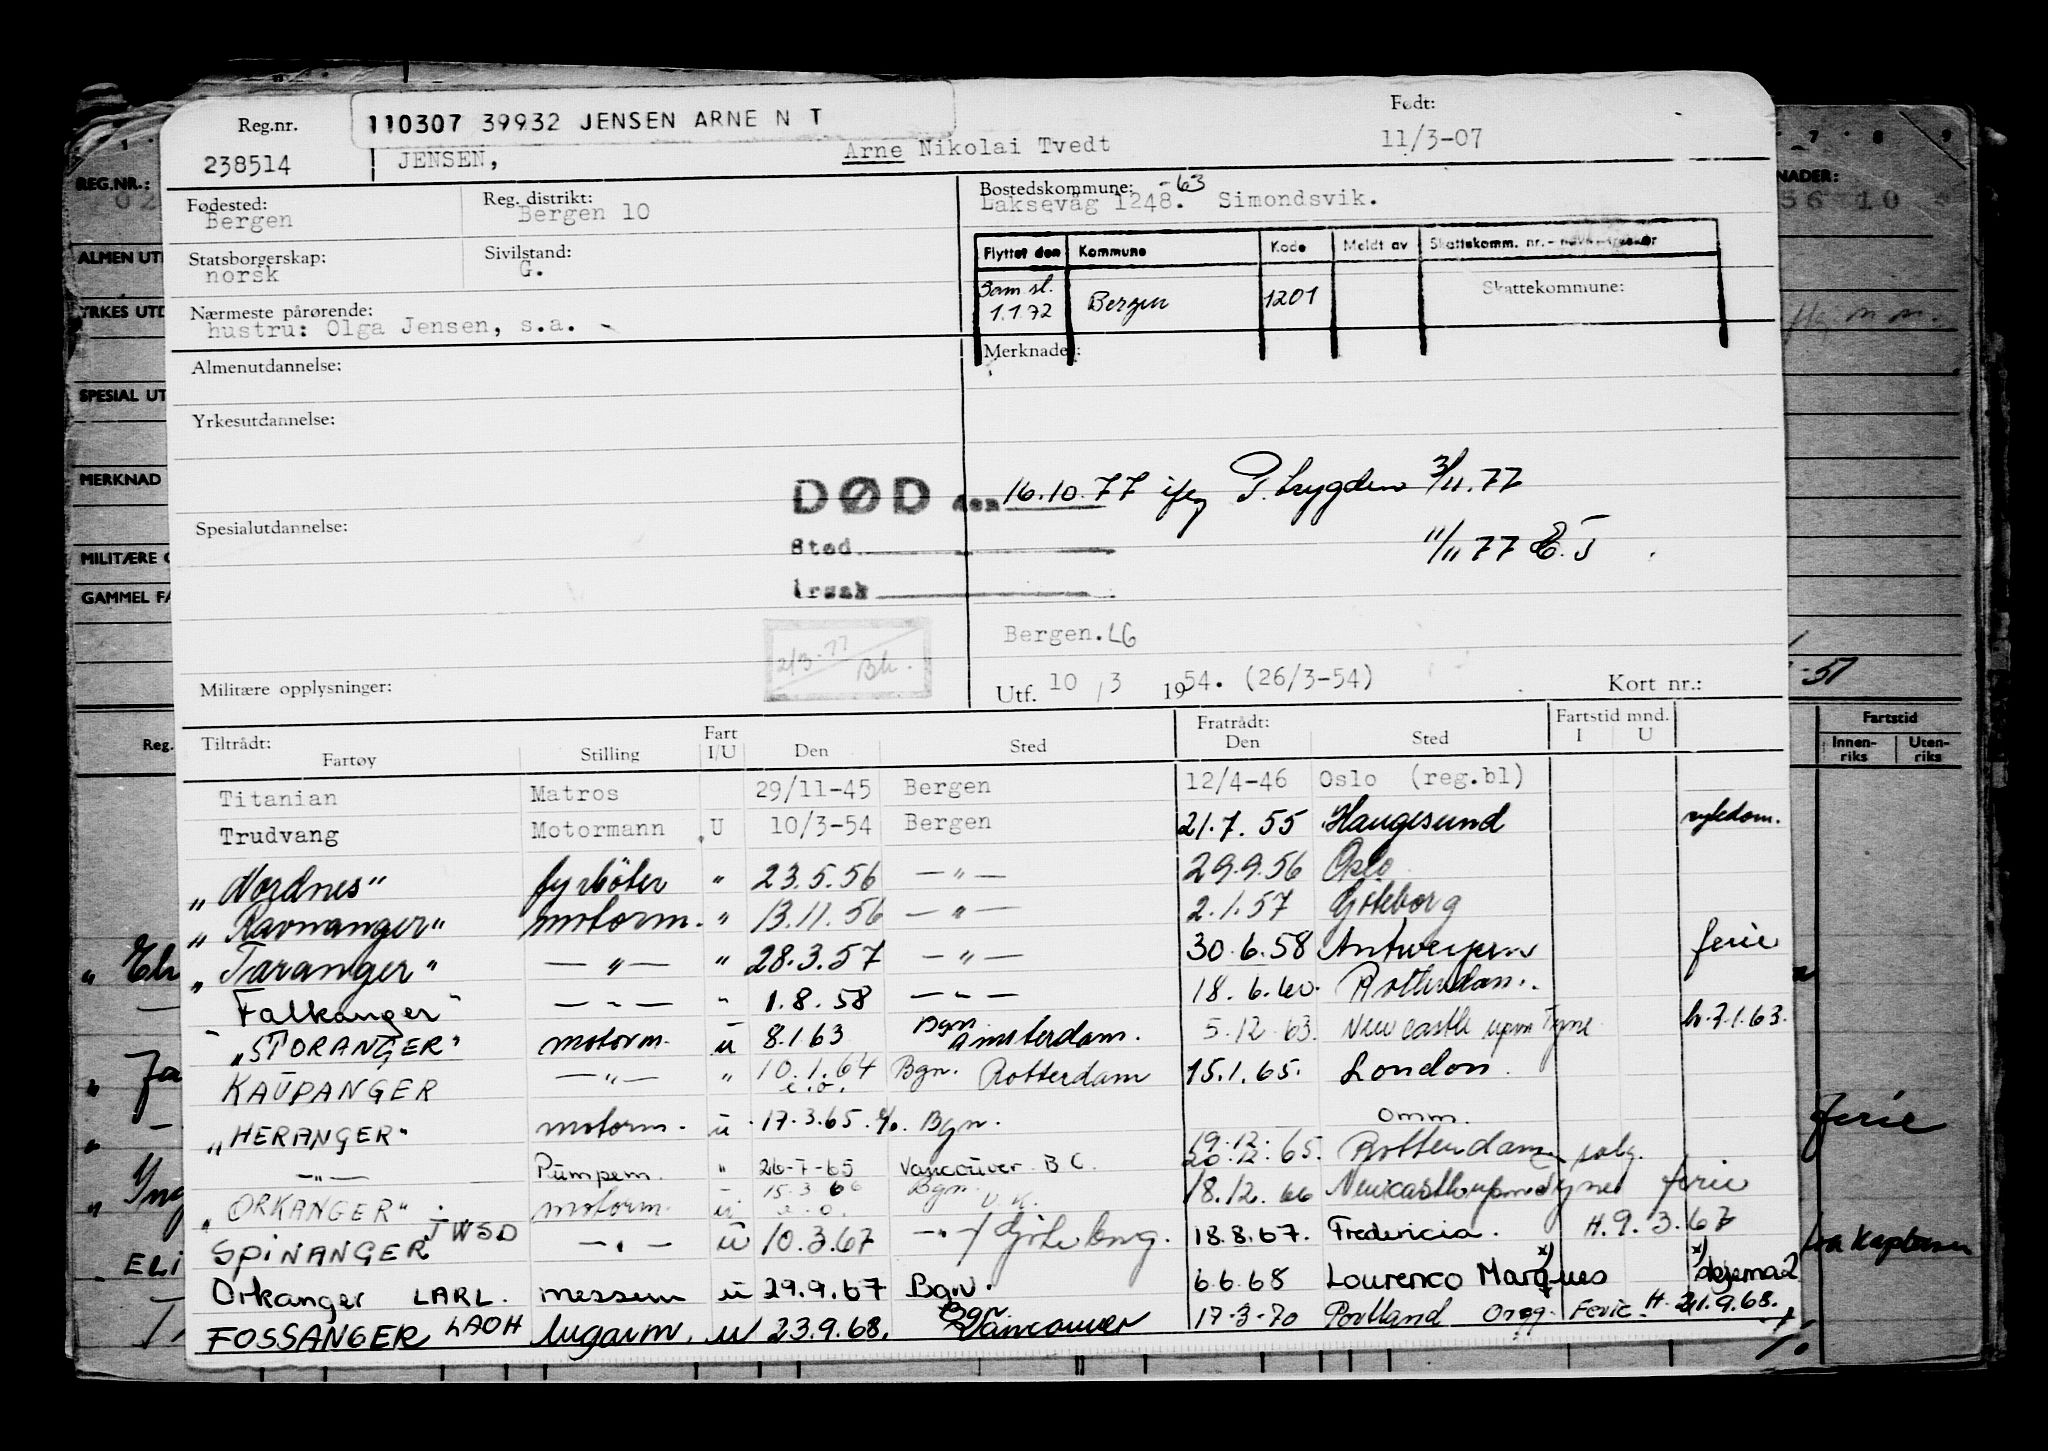 Reg.nr.
110307 39932 JENSEN ARNE N T
Født:
238514
JENSEN, Arne Nikolai Tvedt
11/3-07
Fødested:
Bergen
Reg. distrikt:
Bergen 10
Bostedskommune: -63
Laksevåg 1248. Simondsvik.
Statsborgerskap:
norsk
Sivilstand:
G.
Flyttet den Kommune Kode Meldt av Skattekomm. nr.
Sam sl.
1.1.72 Bergen 1201
Skattekommune:
Nærmeste pårørende:
hustru: Olga Jensen, s.a.
Merknader:
Almenutdannelse:
Yrkesutdannelse:
DØD den 16.10.77 ifg T.trygden 3/11.77
11/11 77
Spesialutdannelse:
Sted
Årsak
Bergen. LG
2/3-77
Bh.
Militære opplysninger:
Utf. 10/3 1954. (26/3-54)
Kort nr.:
Tiltrådt: Fratrådt: Fartstid mnd.
Fartøy Stilling Fart I/U Den Sted Den Sted I U
Titanian Matros 29/11-45 Bergen 12/4-46 Oslo (reg.bl)
Trudvang Motormann U 10/3-54 Bergen 21.7.55 Haugesund sykdom.
"Nordnes" fyrböter " 23.5.56 —"— 29.9.56 Oslo
"Ravnanger" motorm. " 13.11.56 —"— 2.1.57 Göteborg
"Taranger" —"— " 28.3.57 —"— 30.6.58 Antwerpen ferie
Falkanger" —"— " 1.8.58 —"— 18.6.60. Rotterdam.
"STORANGER" motorm. u 8.1.63 Bgn. Amsterdam. 5.12.63. Newcastle upon Tyne h.7.1.63.
KAUPANGER —"— " 10.1.64 e.o. Bgn. Rotterdam 15.1.65. London.
"HERANGER" motorm. u 17.3.65 Bgn. omm.
19.12.65. Rotterdam salg.
20.12.
—"— Pumpem. " 26-7-65 Vancouver B C.
"ORKANGER" motorm. u 15.3 66 e.o. Bgn. U.K. 18.12.66 Newcastle upon Tyne ferie
SPINANGER JWSD —"— u 10.3.67 —"—/Göteborg. 18.8.67. Fredericia. H.9.3.67
Orkanger LARL. messem u 29.9.67 Bgn. 6.6.68 Lourenco Marques x) x) skjema 2
FOSSANGER LAOH lugarm. u 23.9.68. Bgn. Vancouver 17-3-70 Portland Oreg. Ferie H. 21.9.68.
REG.NR.:
ALMEN UTD
YRKES UTD
SPESIAL UT
MERKNAD
MILITÆRE O
GAMMEL FA
Reg.
NADER:
56 10
-51
Fartstid
Innen-riks Uten-riks
ferie
ELI